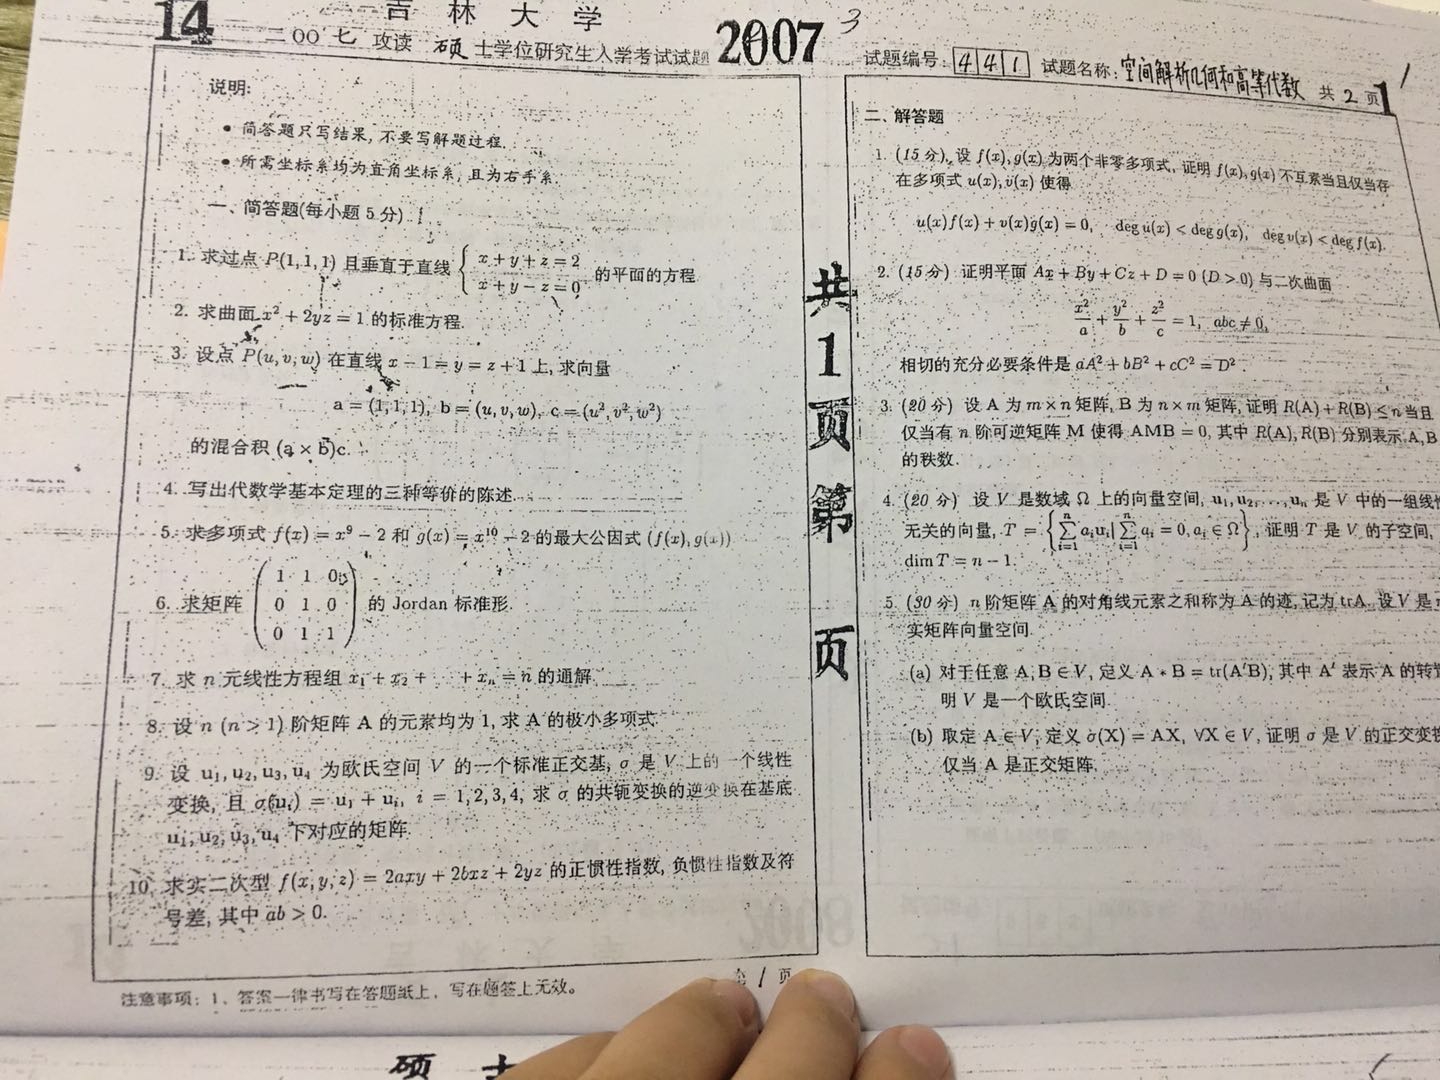 14
吉林大学
二〇〇七 攻读 硕 士学位研究生入学考试试题 2007 3
试题编号: 4 4 1 试题名称: 空间解析几何和高等代数 共 2 页 1
说明:
• 简答题只写结果, 不要写解题过程.
• 所需坐标系均为直角坐标系, 且为右手系.
一、简答题(每小题 5 分)
1. 求过点 P(1,1,1) 且垂直于直线 { x + y + z = 2
x + y − z = 0 的平面的方程.
2. 求曲面 x² + 2yz = 1 的标准方程.
3. 设点 P(u, v, w) 在直线 x − 1 = y = z + 1 上, 求向量
a = (1,1,1), b = (u, v, w), c = (u², v², w²)
的混合积 (a × b)c.
4. 写出代数学基本定理的三种等价的陈述.
5. 求多项式 f(x) = x⁹ − 2 和 g(x) = x¹⁰ − 2 的最大公因式 (f(x), g(x))
6. 求矩阵 ( 1 1 0
0 1 0
0 1 1 ) 的 Jordan 标准形.
7. 求 n 元线性方程组 x₁ + x₂ + ⋯ + xₙ = n 的通解.
8. 设 n (n > 1) 阶矩阵 A 的元素均为 1, 求 A 的极小多项式.
9. 设 u₁, u₂, u₃, u₄ 为欧氏空间 V 的一个标准正交基, σ 是 V 上的一个线性
变换, 且 σ(uᵢ) = u₁ + uᵢ, i = 1, 2, 3, 4, 求 σ 的共轭变换的逆变换在基底
u₁, u₂, u₃, u₄ 下对应的矩阵.
10. 求实二次型 f(x, y, z) = 2axy + 2bxz + 2yz 的正惯性指数, 负惯性指数及符
号差, 其中 ab > 0.
共 1 页 第 页
二、解答题
1. (15 分) 设 f(x), g(x) 为两个非零多项式, 证明 f(x), g(x) 不互素当且仅当存
在多项式 u(x), v(x) 使得
u(x)f(x) + v(x)g(x) = 0, deg u(x) < deg g(x), deg v(x) < deg f(x).
2. (15 分) 证明平面 Ax + By + Cz + D = 0 (D > 0) 与二次曲面
x²/a + y²/b + z²/c = 1, abc ≠ 0,
相切的充分必要条件是 aA² + bB² + cC² = D².
3. (20 分) 设 A 为 m × n 矩阵, B 为 n × m 矩阵, 证明 R(A) + R(B) ≤ n 当且
仅当有 n 阶可逆矩阵 M 使得 AMB = 0, 其中 R(A), R(B) 分别表示 A, B
的秩数.
4. (20 分) 设 V 是数域 Ω 上的向量空间, u₁, u₂, …, uₙ 是 V 中的一组线性
无关的向量, T = { ∑ᵢ₌₁ⁿ aᵢuᵢ | ∑ᵢ₌₁ⁿ aᵢ = 0, aᵢ ∈ Ω }, 证明 T 是 V 的子空间,
dim T = n − 1.
5. (30 分) n 阶矩阵 A 的对角线元素之和称为 A 的迹, 记为 trA. 设 V 是
实矩阵向量空间.
(a) 对于任意 A, B ∈ V, 定义 A ∗ B = tr(A′B), 其中 A′ 表示 A 的转置
明 V 是一个欧氏空间.
(b) 取定 A ∈ V, 定义 σ(X) = AX, ∀X ∈ V, 证明 σ 是 V 的正交变换
仅当 A 是正交矩阵.
注意事项: 1、答案一律书写在答题纸上, 写在题签上无效。
1 页
硕 士